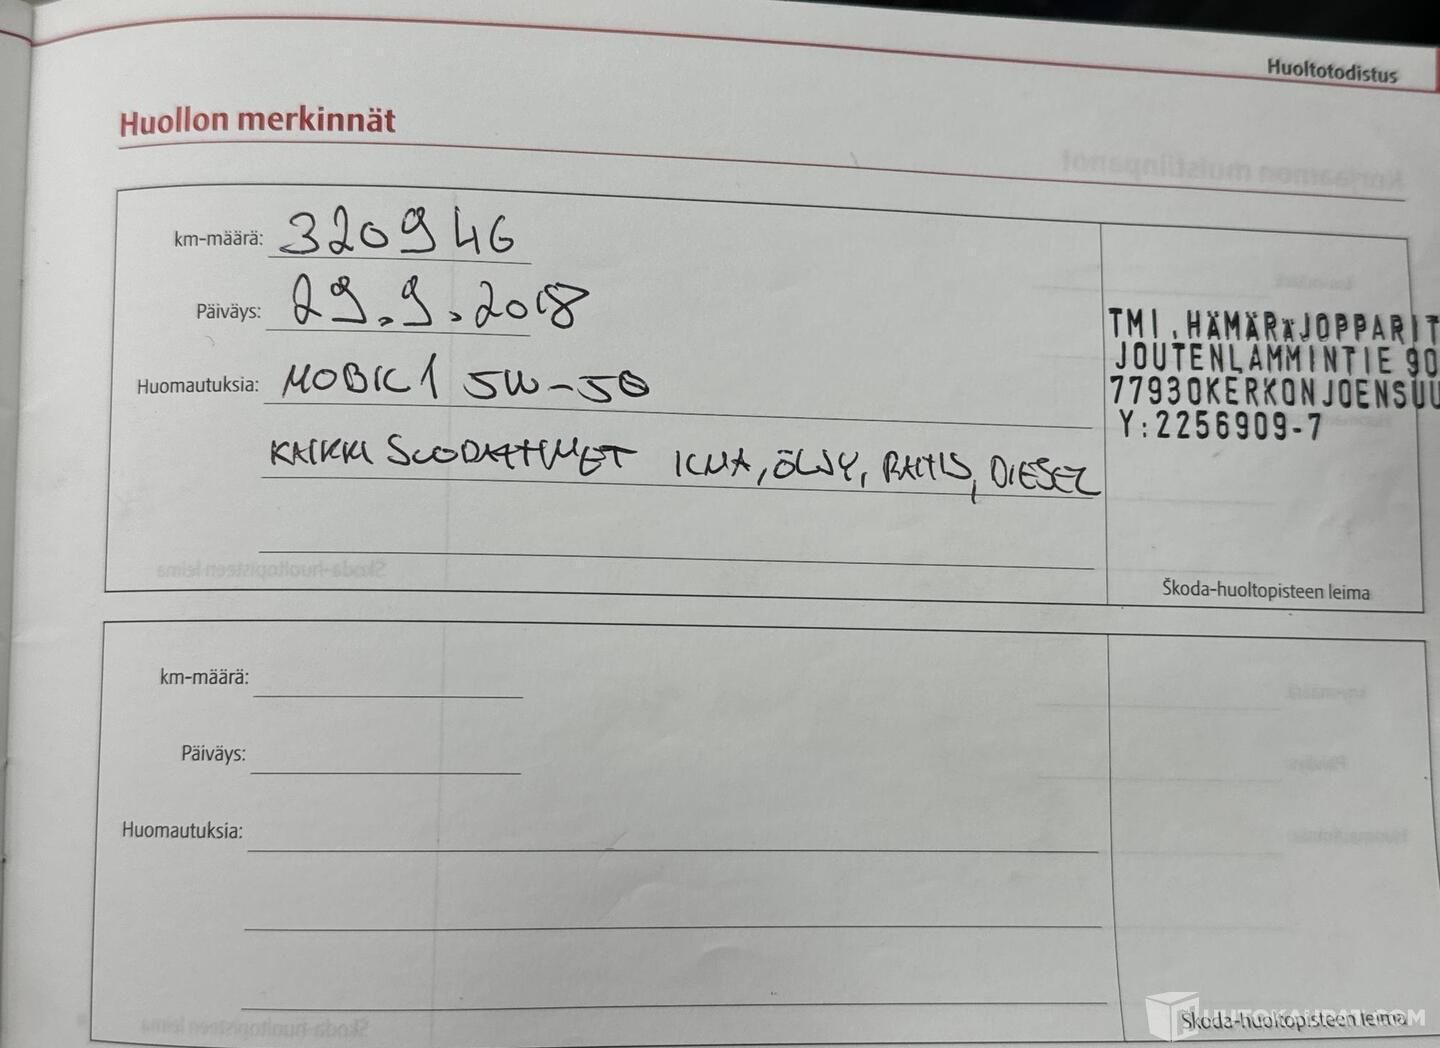 Huoltotodistus
Huollon merkinnät
km-määrä: 320946
Päiväys: 29.9.2018
Huomautuksia: MOBIL 1 5W-50
KAIKKI SUODATTIMET ILMA, ÖLJY, RAITIS, DIESEL
TMI.HÄMÄRÄJOPPARIT
JOUTENLAMMINTIE 90
77930KERKONJOENSUU
Y:2256909-7
Škoda-huoltopisteen leima
km-määrä:
Päiväys:
Huomautuksia:
Škoda-huoltopisteen leima
HUUTOKAUPAT.COM